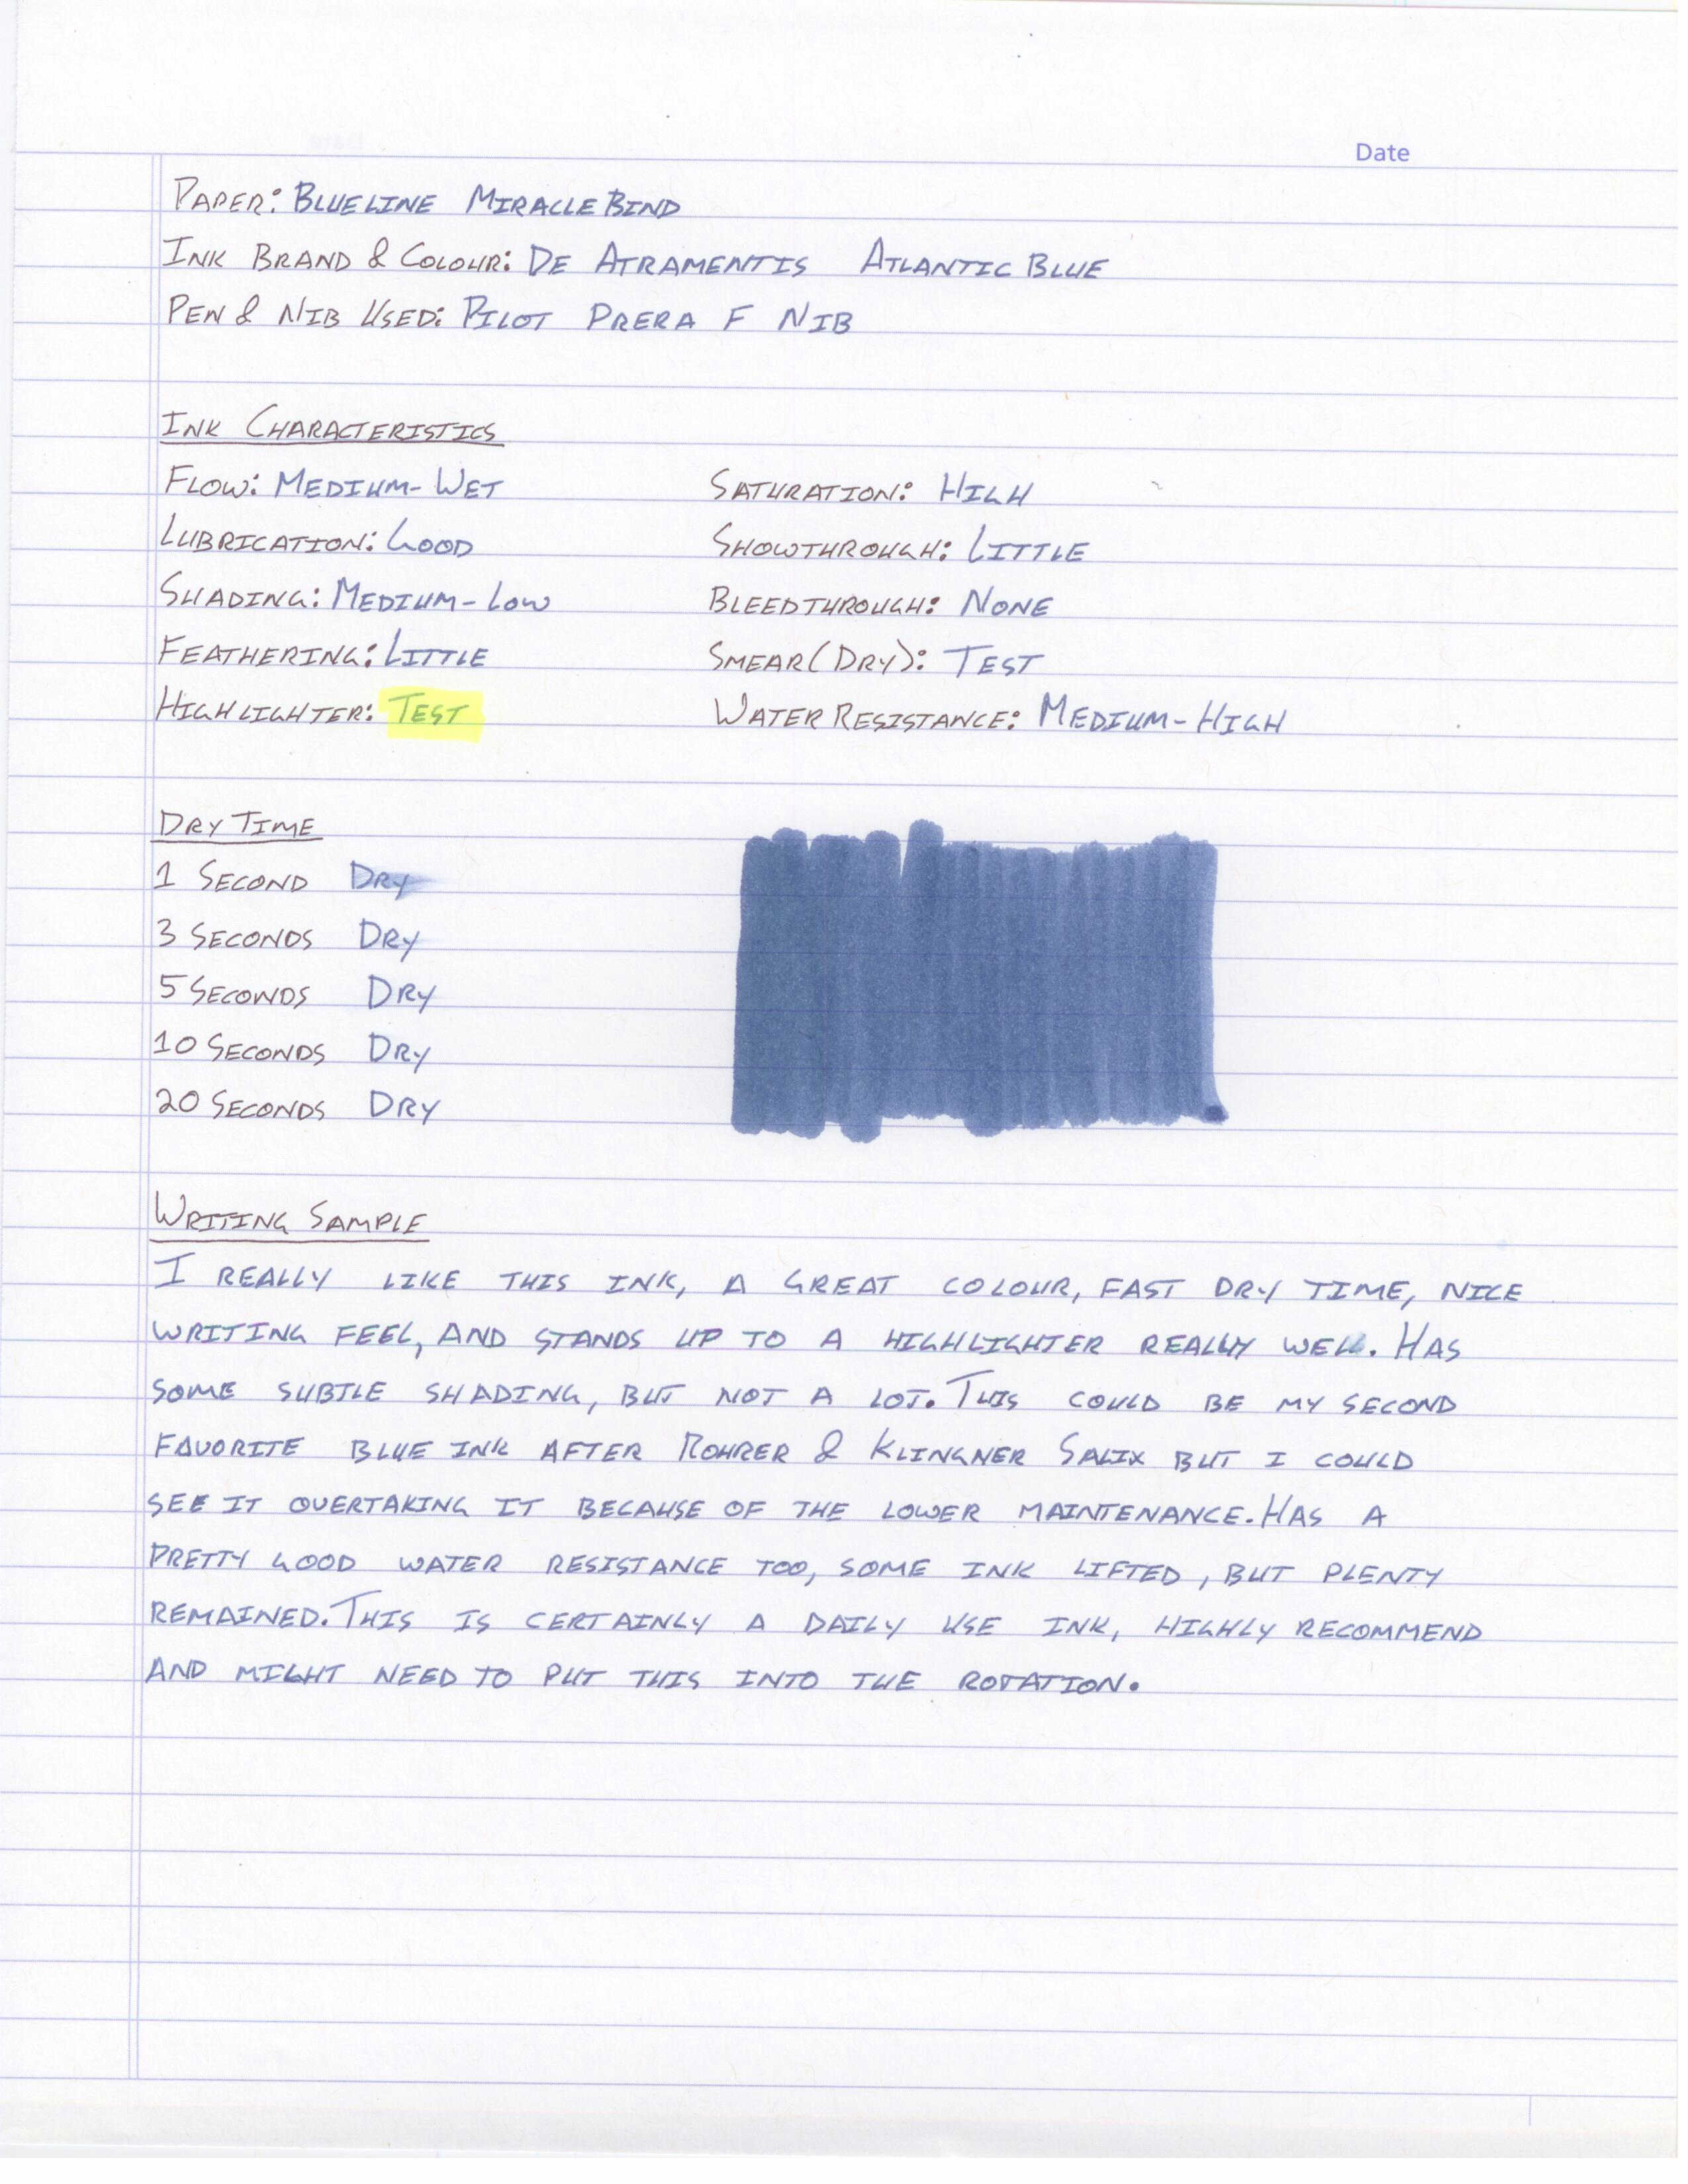 Date
PAPER: BLUELINE MIRACLEBIND
INK BRAND & COLOUR: DE ATRAMENTIS ATLANTIC BLUE
PEN & NIB USED: PILOT PRERA F NIB
INK CHARACTERISTICS
FLOW: MEDIUM-WET SATURATION: HIGH
LUBRICATION: GOOD SHOWTHROUGH: LITTLE
SHADING: MEDIUM-LOW BLEEDTHROUGH: NONE
FEATHERING: LITTLE SMEAR (DRY): TEST
HIGHLIGHTER: TEST WATER RESISTANCE: MEDIUM-HIGH
DRY TIME
1 SECOND DRY
3 SECONDS DRY
5 SECONDS DRY
10 SECONDS DRY
20 SECONDS DRY
WRITING SAMPLE
I REALLY LIKE THIS INK, A GREAT COLOUR, FAST DRY TIME, NICE
WRITING FEEL, AND STANDS UP TO A HIGHLIGHTER REALLY WELL. HAS
SOME SUBTLE SHADING, BUT NOT A LOT. THIS COULD BE MY SECOND
FAVORITE BLUE INK AFTER ROHRER & KLINGNER SALIX BUT I COULD
SEE IT OVERTAKING IT BECAUSE OF THE LOWER MAINTENANCE. HAS A
PRETTY GOOD WATER RESISTANCE TOO, SOME INK LIFTED, BUT PLENTY
REMAINED. THIS IS CERTAINLY A DAILY USE INK, HIGHLY RECOMMEND
AND MIGHT NEED TO PUT THIS INTO THE ROTATION.